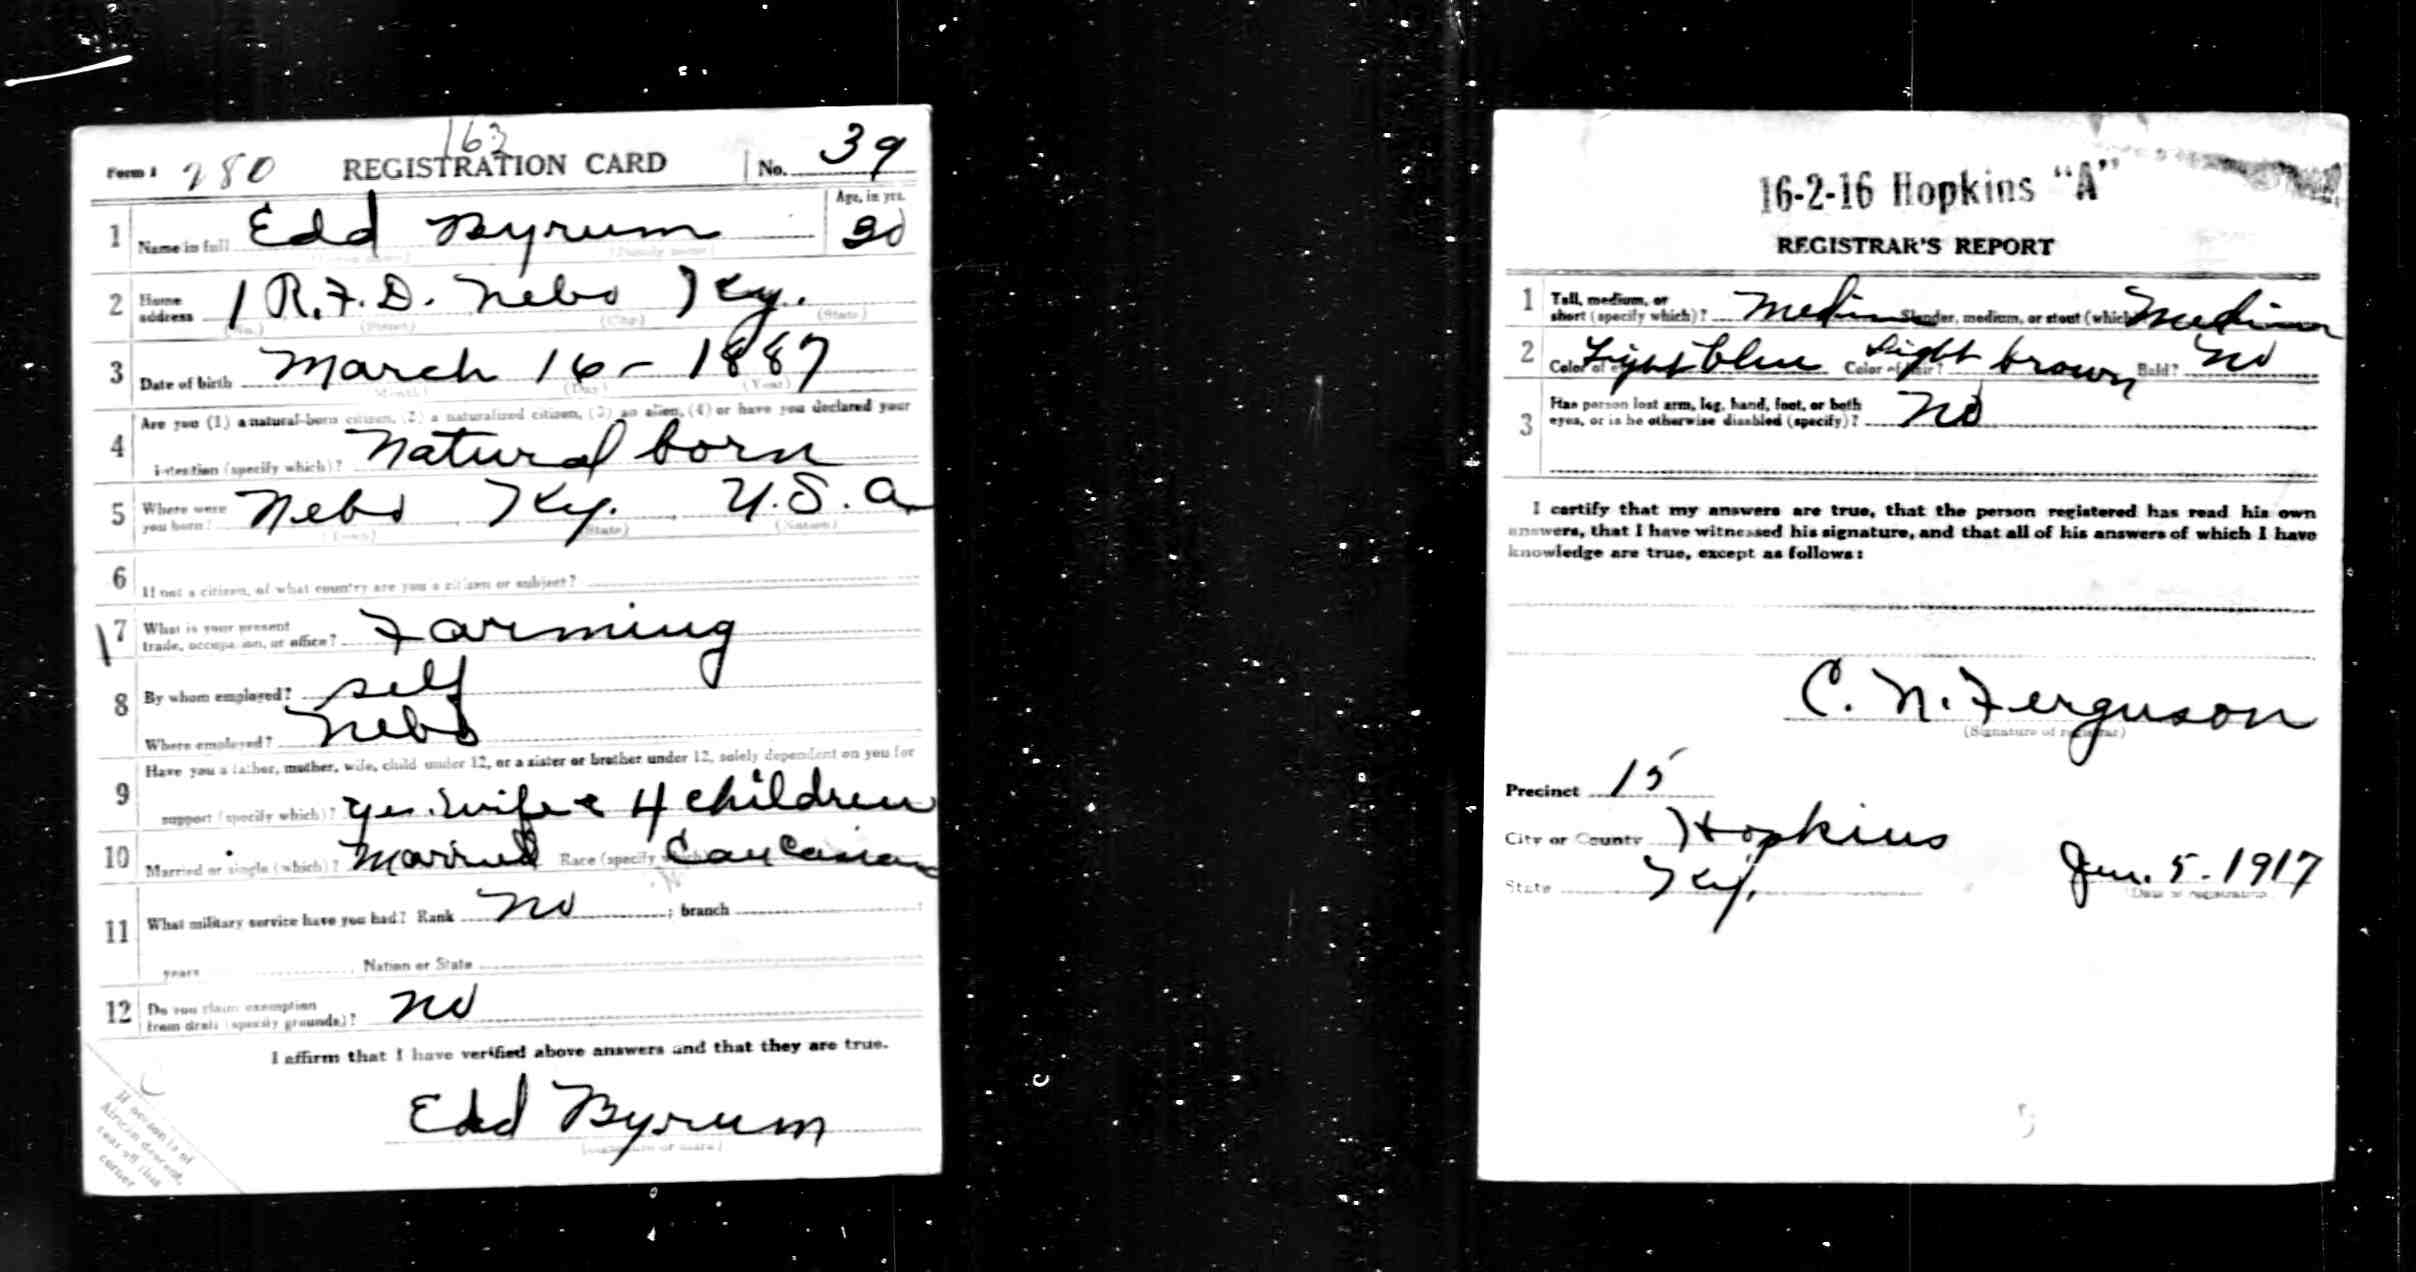 163
Form 1 280 REGISTRATION CARD No. 39
1 Name in full Edd Byrum Age, in yrs. 30
(Given name) (Family name)
2 Home address 1 R.F.D. Nebo Ky.
(No.) (Street) (City) (State)
3 Date of birth March 16 - 1887
(Month) (Day) (Year)
4 Are you (1) a natural-born citizen, (2) a naturalized citizen, (3) an alien, (4) or have you declared your
intention (specify which)? Natural born
5 Where were you born? Nebo Ky. U.S.a
(Town) (State) (Nation)
6 If not a citizen, of what country are you a citizen or subject?
7 What is your present
trade, occupation, or office? Farming
8 By whom employed? self
Where employed? Nebo
9 Have you a father, mother, wife, child under 12, or a sister or brother under 12, solely dependent on you for
support (specify which)? yes. wife & 4 children
10 Married or single (which)? Married Race (specify which)? Caucasian
11 What military service have you had? Rank No ; branch
years Nation or State
12 Do you claim exemption
from draft (specify grounds)? No
I affirm that I have verified above answers and that they are true.
Edd Byrum
(Signature or mark)
If person is of
African descent,
tear off this
corner
16-2-16 Hopkins "A"
REGISTRAR'S REPORT
1 Tall, medium, or
short (specify which)? Medium Slender, medium, or stout (which)? Medium
2 Color of eyes? Light blue Color of hair? Light brown Bald? No
3 Has person lost arm, leg, hand, foot, or both
eyes, or is he otherwise disabled (specify)? No
I certify that my answers are true, that the person registered has read his own
answers, that I have witnessed his signature, and that all of his answers of which I have
knowledge are true, except as follows:
C. N. Ferguson
(Signature of registrar)
Precinct 15
City or County Hopkins
State Ky.
Jun. 5 - 1917
Date of registration